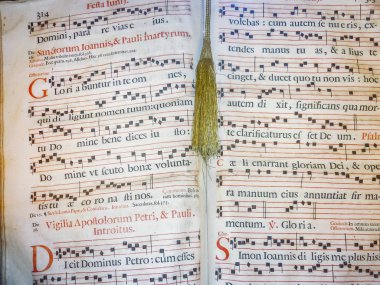 314
Festa Iunij
Domini, para re vias e jus.
Sanctorum Ioannis, & Pauli martyrum.
G
Glori a buntur in te om nes,
di ligunt nomen tuum: quoniam
tu Do mine bene dices iu sto:
Do mine vt scuto bonæ volunta-
tis tu æ co ro na sti nos.
Vigilia Apostolorum Petri, & Pauli.
Introitus.
Dicit Dominus Petro: cum esses
volebas: cum autem se nu e ris, ex-
tendes manus tu as, & a li us te
cinget, & ducet quo tu non vis: hoc
autem di xit, significans qua mor
te clarificaturus es set De um. Psal
Cæ li enarrant gloriam Dei, & ope
ra manuum eius annunciat fir ma
mentum. ℣. Glo ri a
Simon Ioannis di ligis me plus his